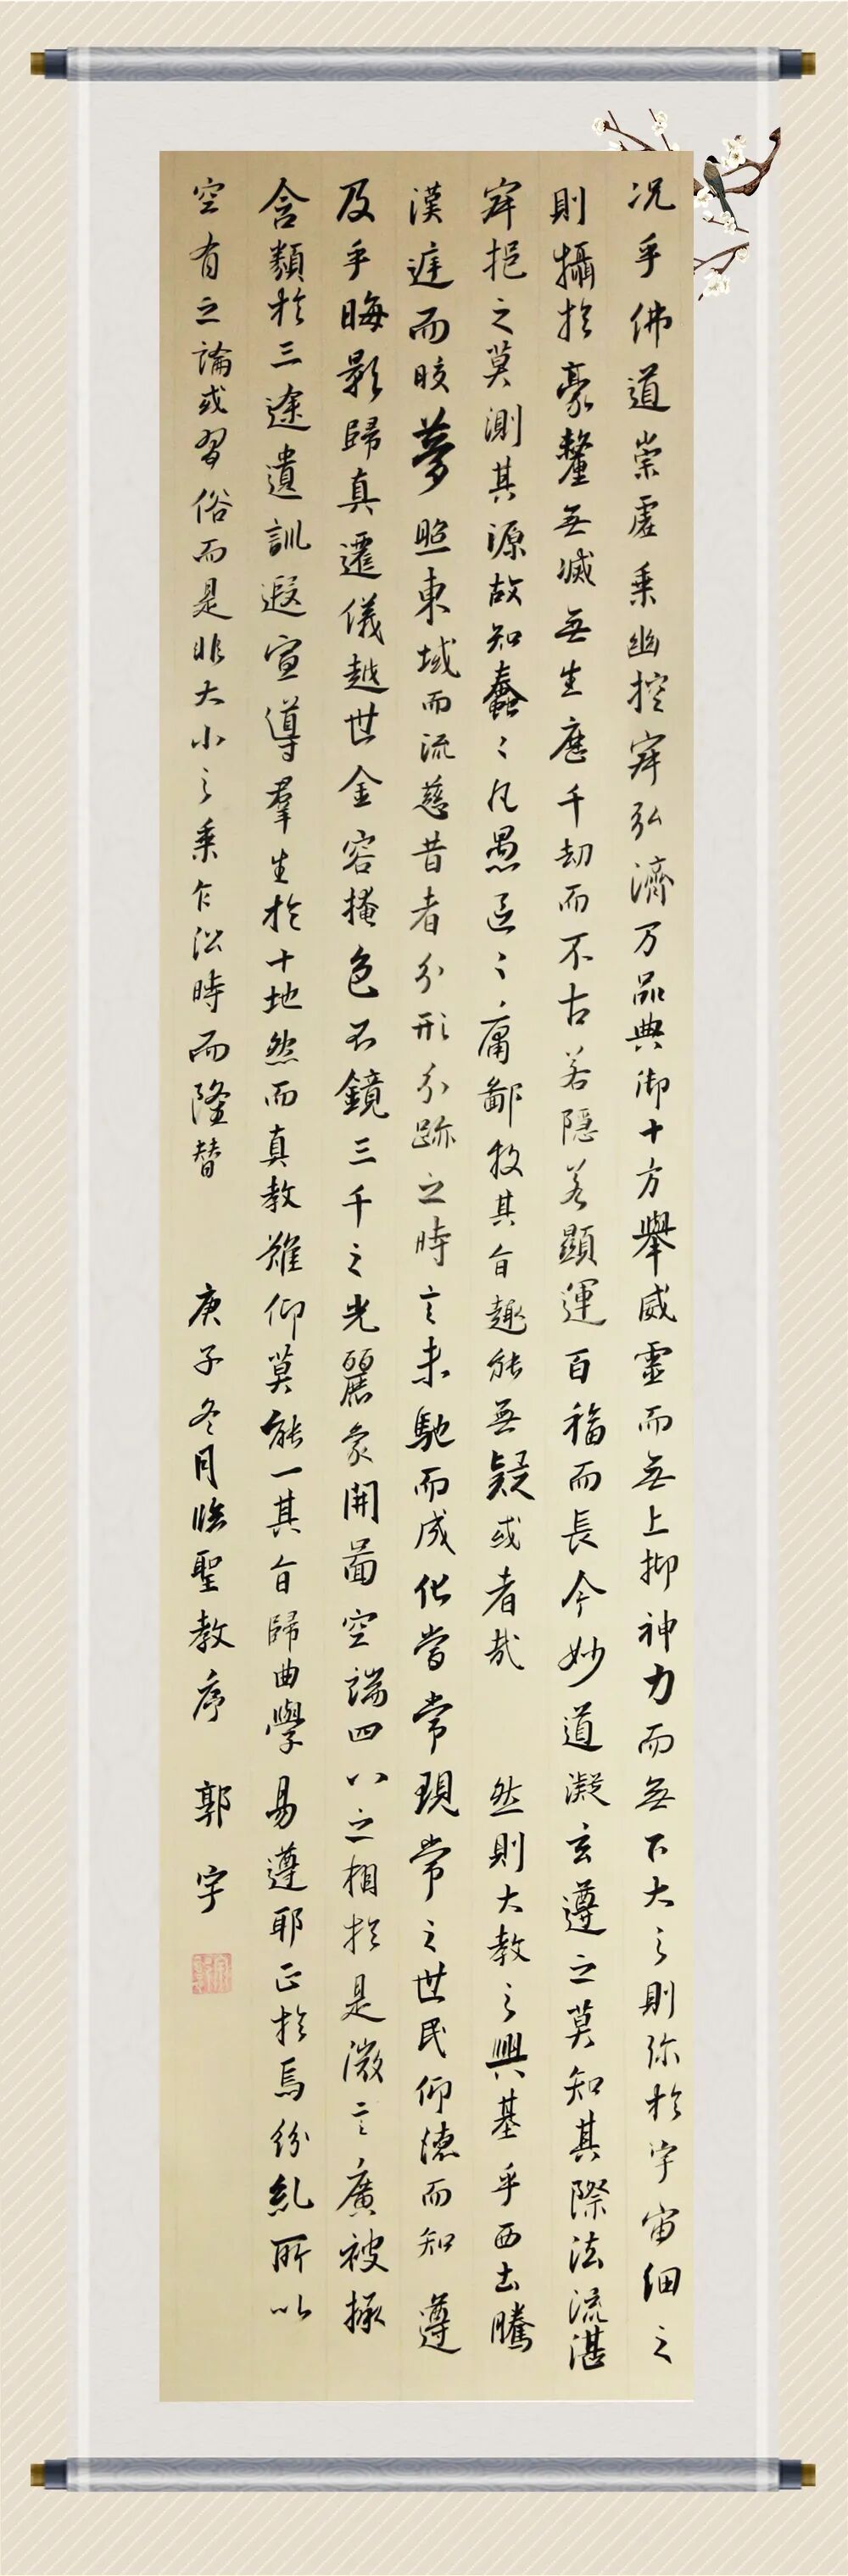 况乎佛道崇虛乘幽控寂弘濟万品典御十方舉威靈而無上抑神力而無下大之則弥於宇宙細之
則攝於豪釐無滅無生歷千劫而不古若隱若顯運百福而長今妙道凝玄遵之莫知其際法流湛
寂挹之莫測其源故知蠢〻凡愚區〻庸鄙投其旨趣能無疑或者哉 然則大教之興基乎西土騰
漢庭而皎夢照東域而流慈昔者分形分跡之時言未馳而成化當常現常之世民仰德而知遵
及乎晦影歸真遷儀越世金容掩色不鏡三千之光麗象開圖空端四八之相於是微言廣被拯
含類於三途遺訓遐宣導羣生於十地然而真教難仰莫能一其旨歸曲學易遵耶正於焉紛糺所以
空有之論或習俗而是非大小之乘乍沿時而隆替 庚子冬月臨聖教序 郭宇